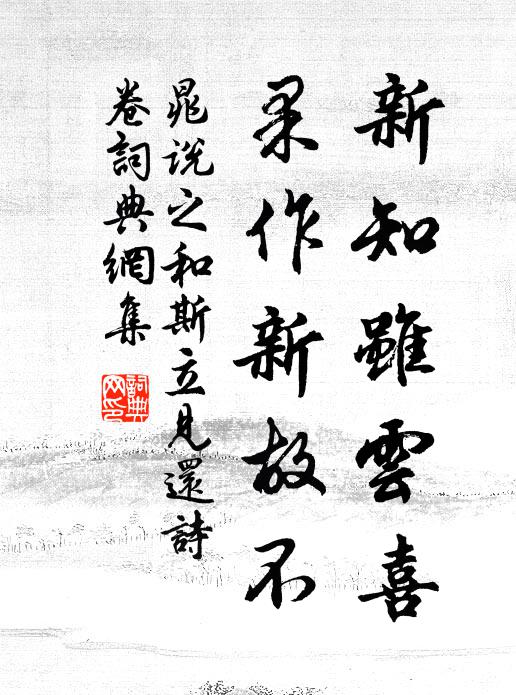 新知雖雲喜
果作新故不
晁說之和斯立見還詩
卷詞典網集
詞典
网印